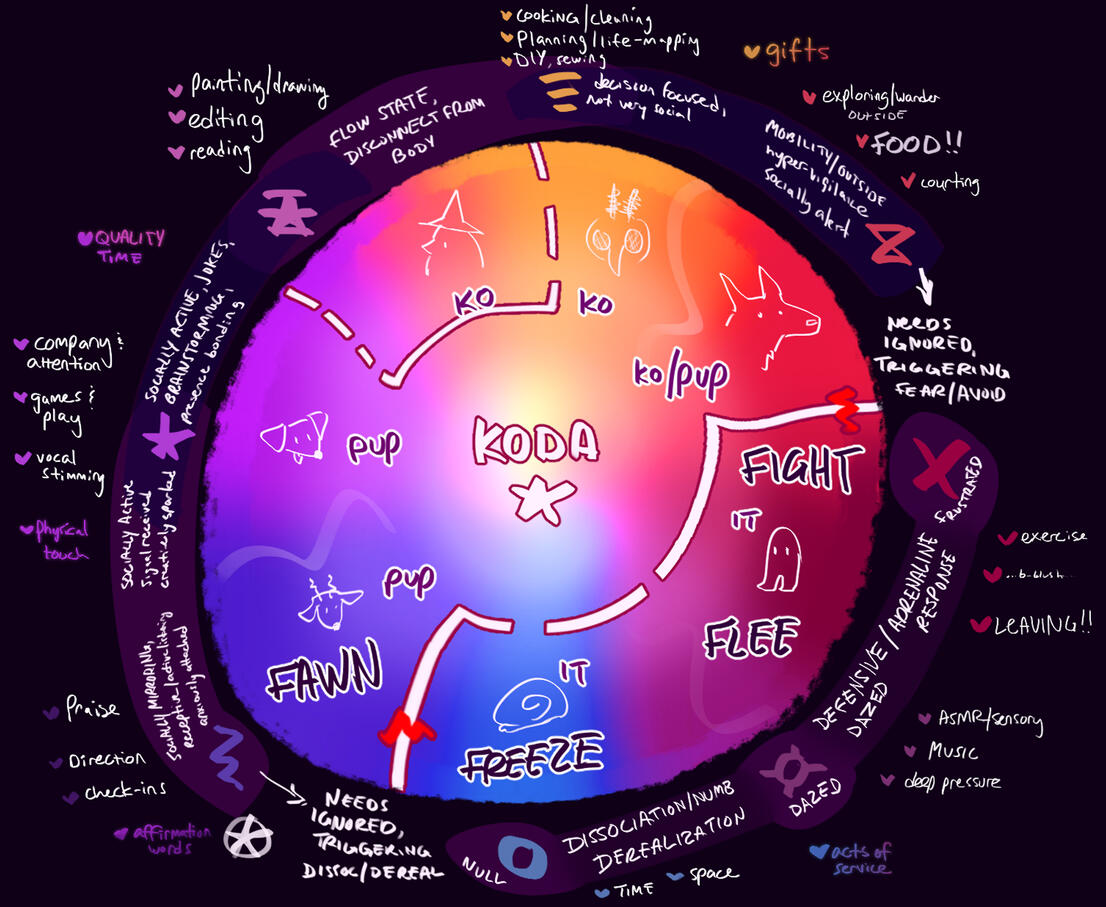 COOKING/cleaning
Planning/life-mapping
DIY, sewing
gifts
decision focused,
not very social
exploring/wander
OUTSIDE
FOOD!!
courting
MOBILITY/OUTSIDE
hyper-vigilance
socially alert
NEEDS
IGNORED,
TRIGGERING
FEAR/AVOID
FRUSTRATED
exercise
LEAVING!!
DEFENSIVE/ADRENALINE
RESPONSE
DAZED
ASMR/sensory
Music
deep pressure
DAZED
acts of
service
DISSOCIATION/NUMB
DEREALIZATION
TIME
space
NULL
NEEDS
IGNORED,
TRIGGERING
DISSOC/DEREAL
Praise
Direction
check-ins
affirmation
words
SOCIALLY MIRRORING,
receptive/active listening
anxiously attached
SOCIALLY Active
signal received
creatively sparked
physical
touch
company &
attention
games &
play
vocal
stimming
SOCIALLY ACTIVE, JOKES,
BRAINSTORMING,
presence bonding
QUALITY
TIME
painting/drawing
editing
reading
FLOW STATE,
DISCONNECT FROM
BODY
KO
KO
KO/PUP
PUP
KODA
FIGHT
IT
FLEE
PUP
FAWN
IT
FREEZE